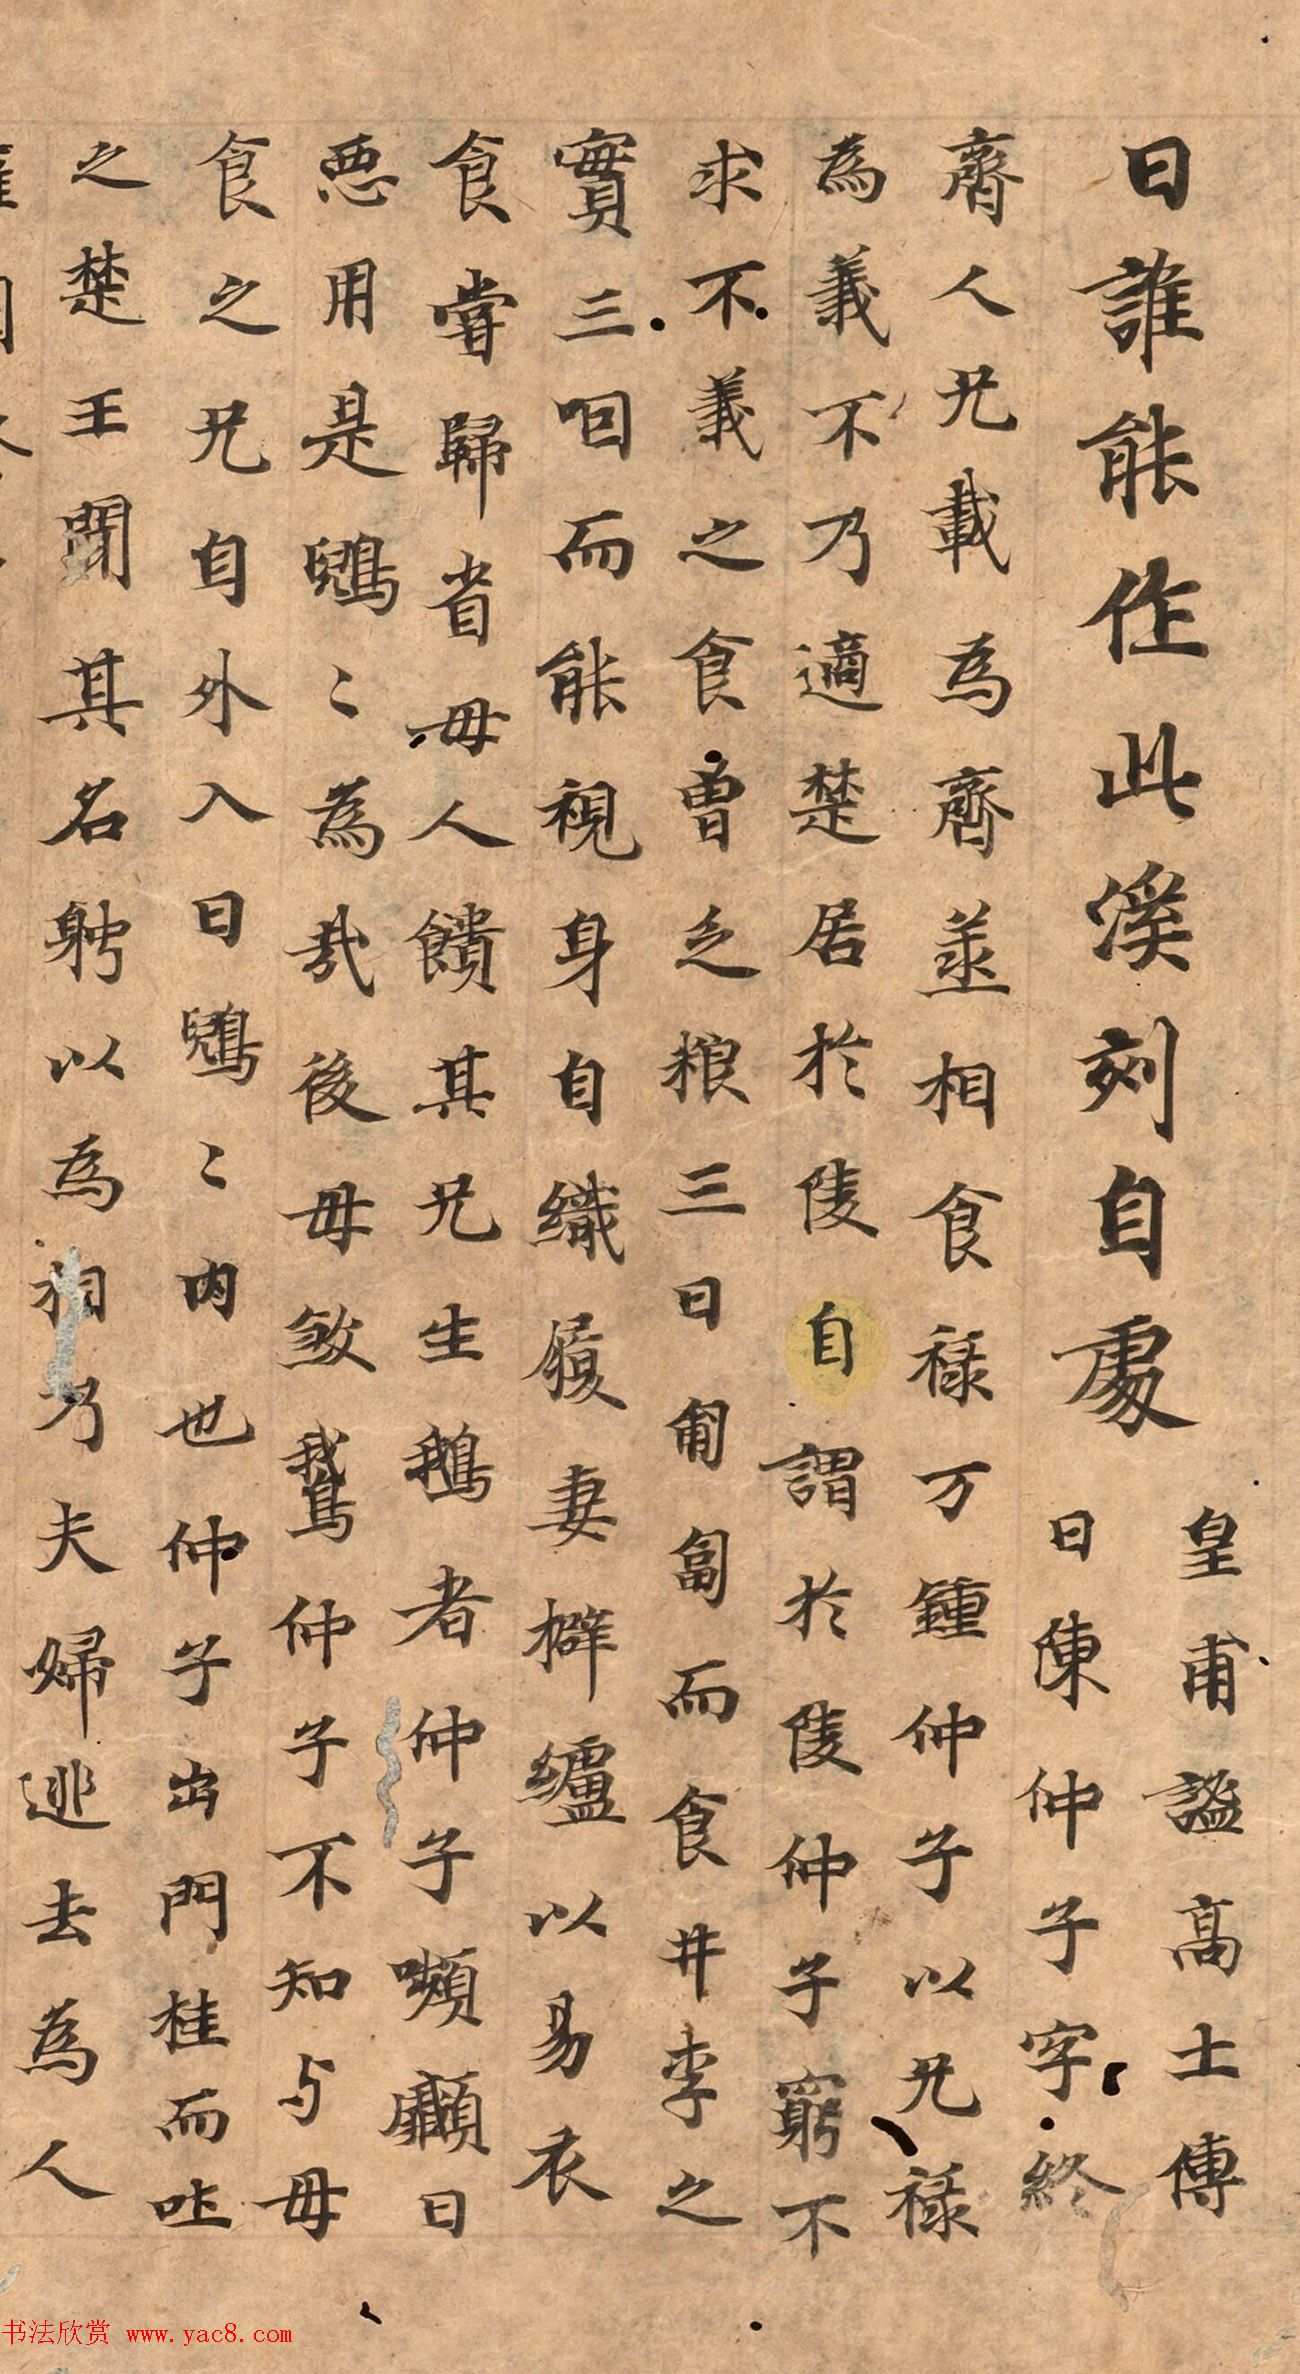 曰誰能作此溪刻自處
皇甫謐高士傳
曰陳仲子字終
齊人兄載為齊並相食祿万鍾仲子以兄祿
為義不乃適楚居於陵自謂於陵仲子窮不
求不義之食曾乏粮三日匍匐而食井李之
實三咽而能視身自織履妻擗纑以易衣
食嘗歸省母人饋其兄生鵝者仲子嚬顣曰
惡用是鶃〻為哉後母煞鵞仲子不知与母
食之兄自外入曰鶃〻内也仲子出門桂而吐
之楚王聞其名躬以為相乃夫婦逃去為人
书法欣赏 www.yac8.com